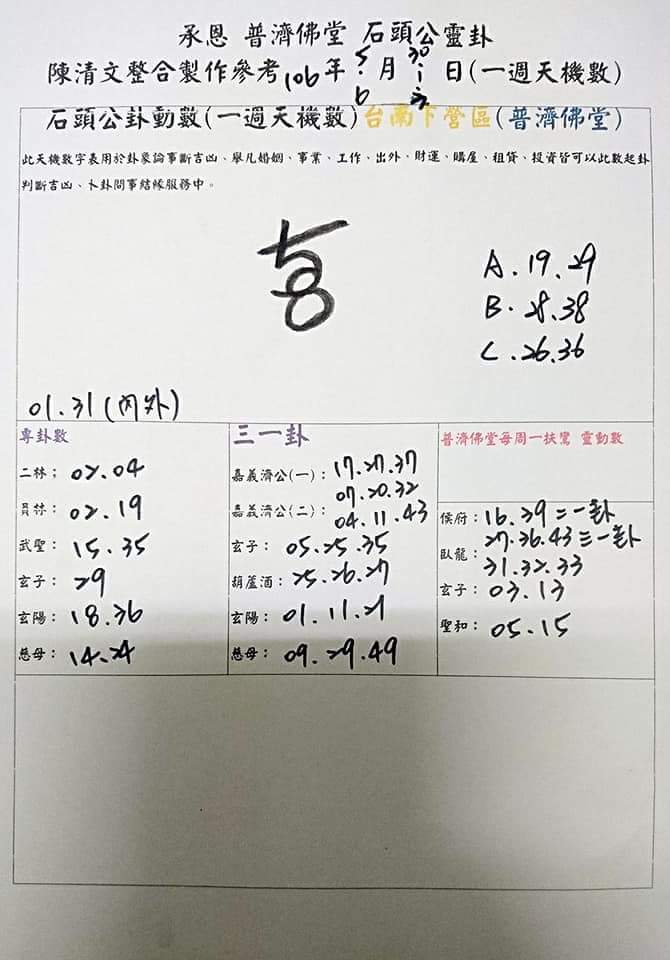 承恩 普濟佛堂 石頭公靈卦
陳清文整合製作參考106年5.6月30-3日(一週天機數)
石頭公卦動數(一週天機數)台南下營區(普濟佛堂)
此天機數字表用於卦象論事斷吉凶、舉凡婚姻、事業、工作、出外、財運、購屋、租賃、投資皆可以此數起卦
判斷吉凶、卜卦問事結緣服務中。
A.19.29
B.28.38
C.26.36
01.31(內外)
專卦數
二林；02.04
員林：02.19
武聖：15.35
玄子：29
玄陽：18.36
慈母：14.24
三一卦
嘉義濟公(一)：17.27.37
07.20.32
嘉義濟公(二)：04.11.43
玄子：05.25.35
葫蘆酒：25.26.27
玄陽：01.11.21
慈母：09.29.49
普濟佛堂每周一扶鸞 靈動數
侯府：16.39二一卦
27.36.43三一卦
臥龍：31.32.33
玄子：03.13
聖和：05.15